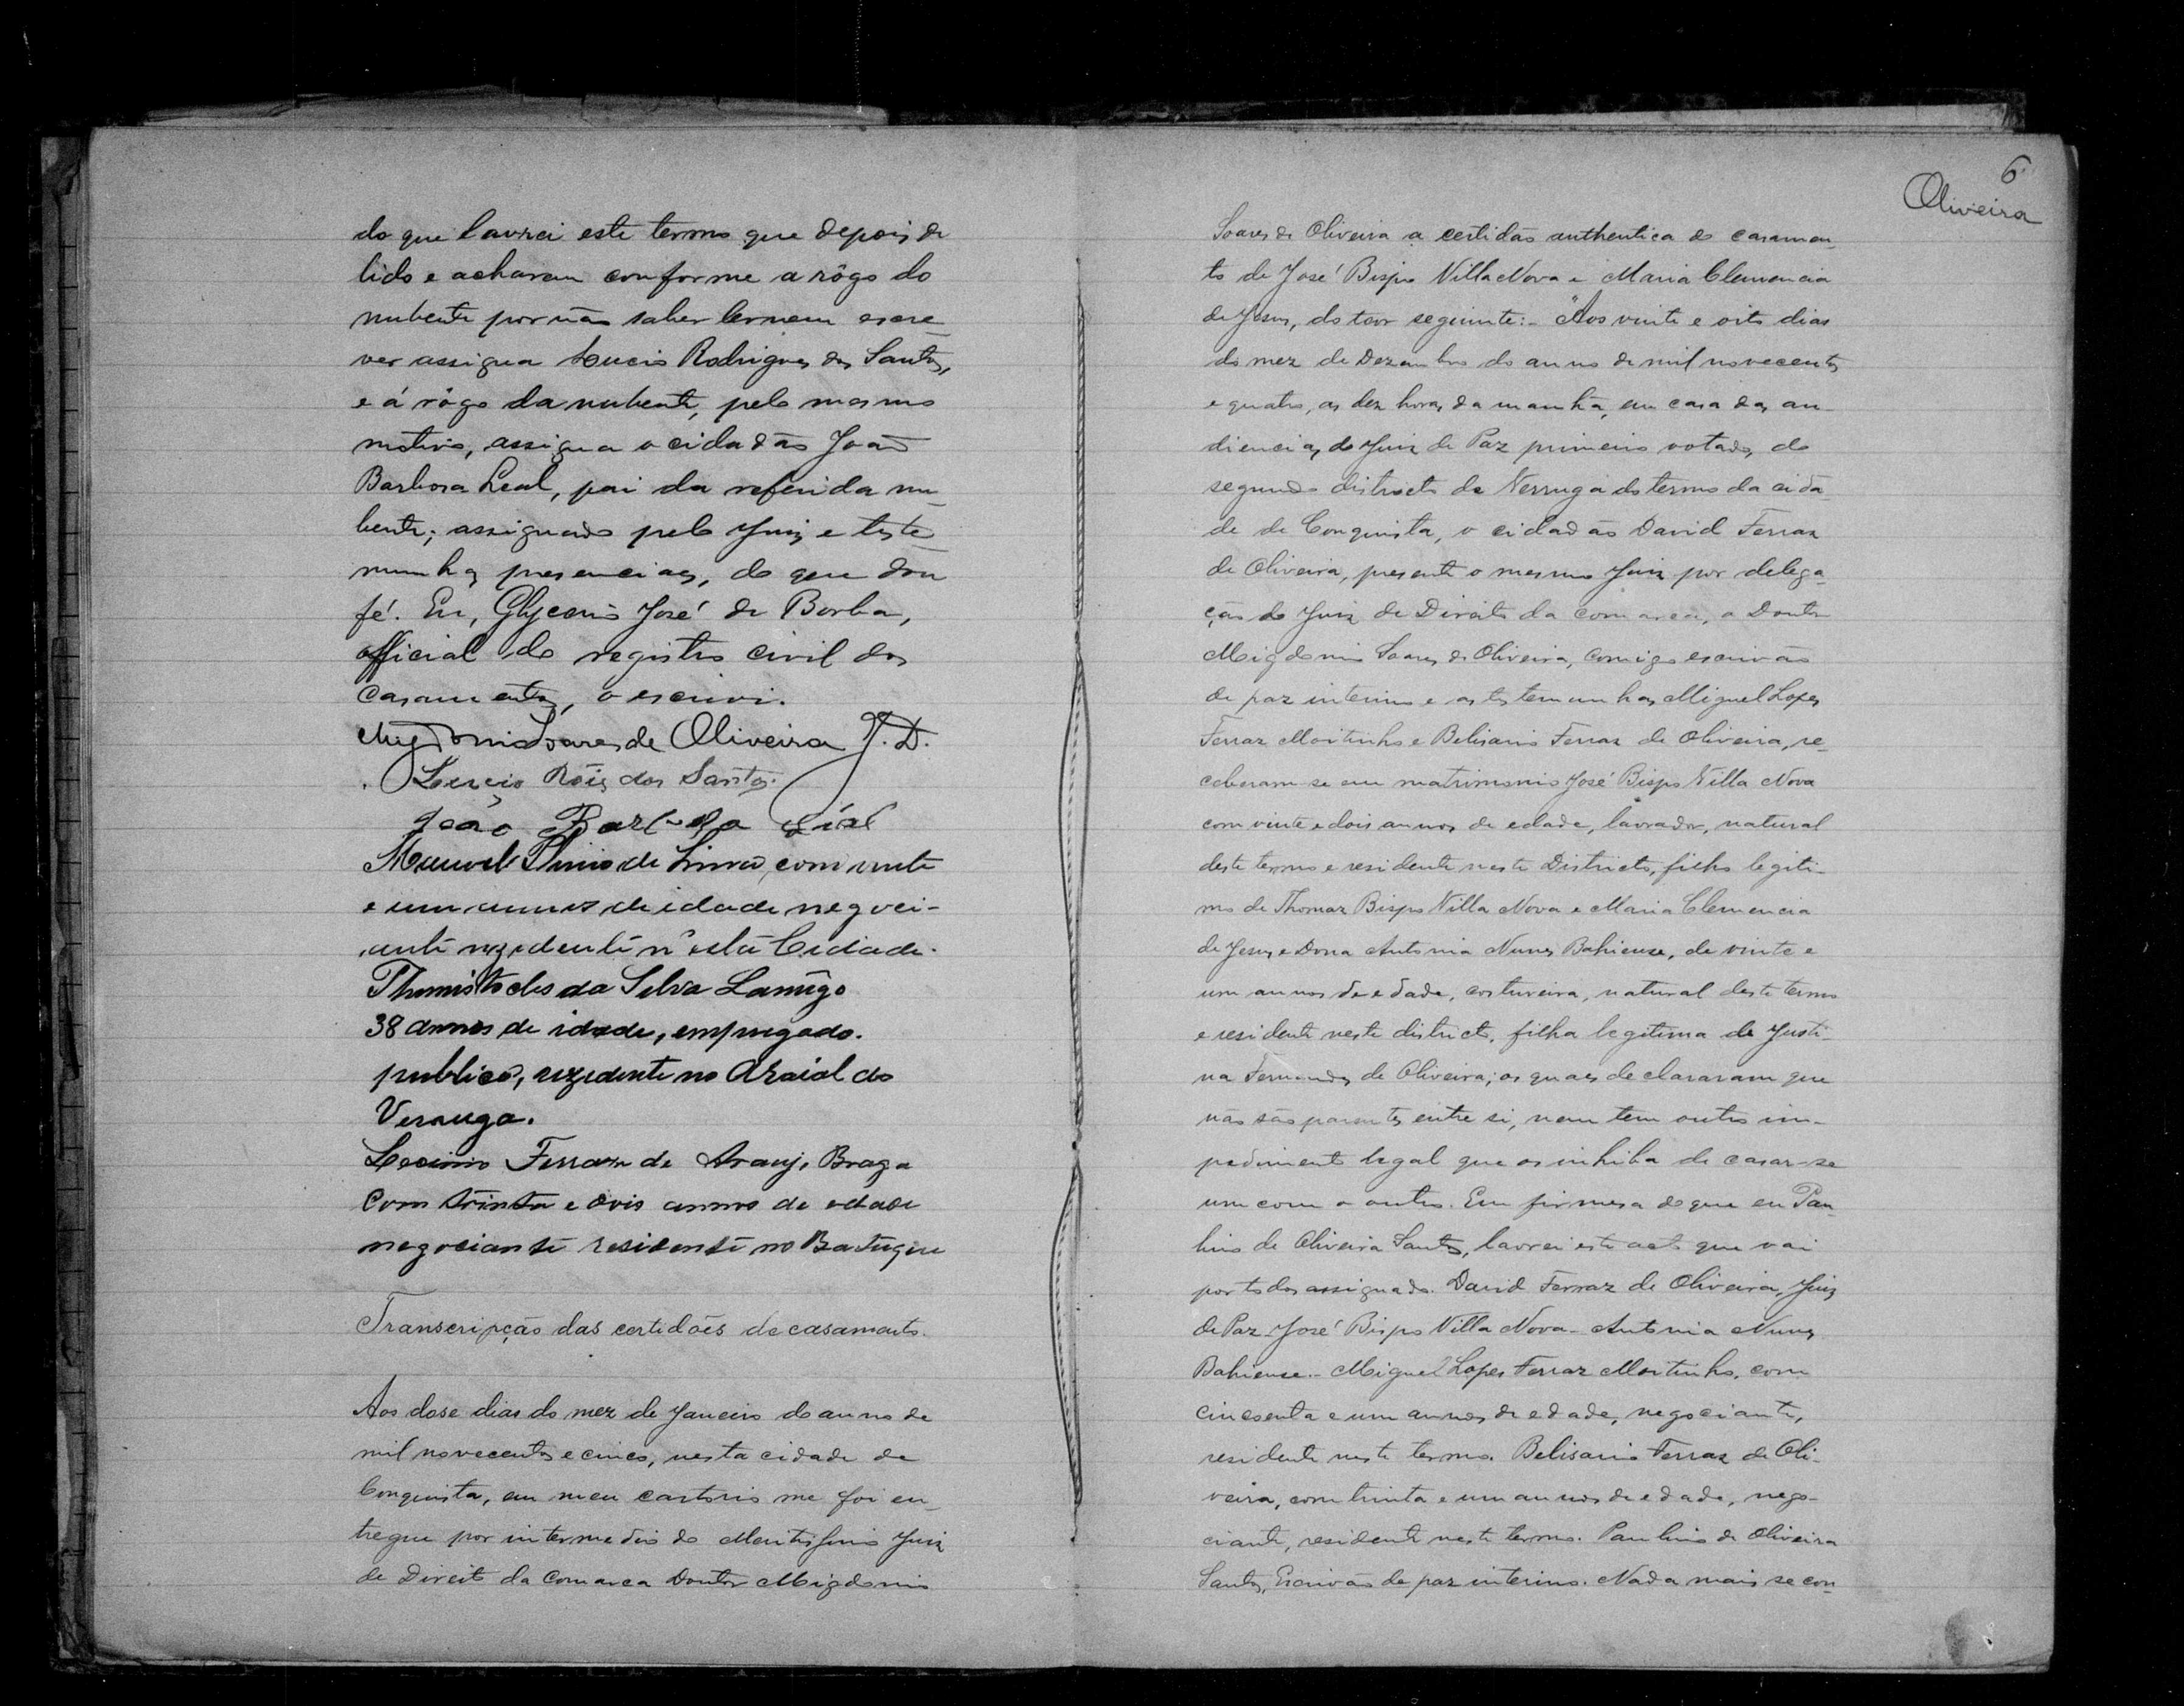 do que lavrei este termo que depois de
lido e acharam conforme a rôgo do
nubente por não saber ler nem escre-
ver assigna Lucio Rodrigues dos Santos,
e á rôgo da nubente, pelo mesmo
motivo, assigna o cidadão João
Barbosa Leal, pai da referida nu-
bente; assignado pelo Juiz e teste-
munhas presenciaes, do que dou
fé. Eu, Glycerio José de Borba,
official do registro civil dos
casamentos, o escrevi.
Migdonio Soares de Oliveira J. D.
Lucio Róis dos Santos.
João Barbosa Lial
Manoel Plinio de Lima, com vinte
e um annos de idade negoci-
ante rezidente n'esta Cidade.
Themistocles da Silva Lamêgo
38 annos de idade, empregado.
publico, rezidente no Araial do
Verruga.
Leconio Ferraz de Araujo Braga
Com trinta e dois annos de edade
negociante residente no Batuque
Transcripção das certidões de casamento.
Aos dose dias do mez de Janeiro do anno de
mil novecentos e cinco, nesta cidade de
Conquista, em meu cartorio me foi en-
tregue por intermedio do Meritissimo Juiz
de Direito da Comarca Doutor Migdonio
6
Oliveira
Soares de Oliveira a certidão authentica do casamen-
to de José Bispo Villa Nova e Maria Clemencia
de Jesus, do teor seguinte:- "Aos vinte e oito dias
do mez de Dezembro do anno de mil novecentos
e quatro, as dez horas da manhã, em casa das au-
diencias do Juiz de Paz primeiro votado, do
segundo districto de Verruga do termo da cida-
de de Conquista, o cidadão David Ferraz
de Oliveira, presente o mesmo Juiz por delega-
ção do Juiz de Direito da comarca, o Doutor
Migdonio Soares de Oliveira, comigo escrivão
de paz interino e as testemunhas Miguel Lopes
Ferraz Moitinho e Belisario Ferraz de Oliveira, re-
ceberam-se em matrimonio José Bispo Villa Nova
com vinte e dois annos de edade, lavrador, natural
deste termo e residente neste Districto, filho legiti-
mo de Thomaz Bispo Villa Nova e Maria Clemencia
de Jesus e Dona Antonia Nunes Bahiense, de vinte e
um annos de edade, costureira, natural deste termo
e residente neste districto, filha legitima de Justi-
na Fernandes de Oliveira; os quaes declararam que
não são parentes entre si, nem tem outro im-
pedimento legal que os inhiba de casar-se
um com o outro. Em firmesa do que eu Pau-
lino de Oliveira Santos, lavrei este acto que vai
por todos assignado. David Ferraz de Oliveira, Juiz
de Paz José Bispo Villa Nova - Antonia Nunes
Bahiense.- Miguel Lopes Ferraz Moitinho, com
cincoenta e um annos de edade, negociante,
residente neste termo. Belisario Ferraz de Oli-
veira, com trinta e um annos de edade, nego-
ciante, residente neste termo. Paulino de Oliveira
Santos, Escrivão de paz interino. Nada mais se con-